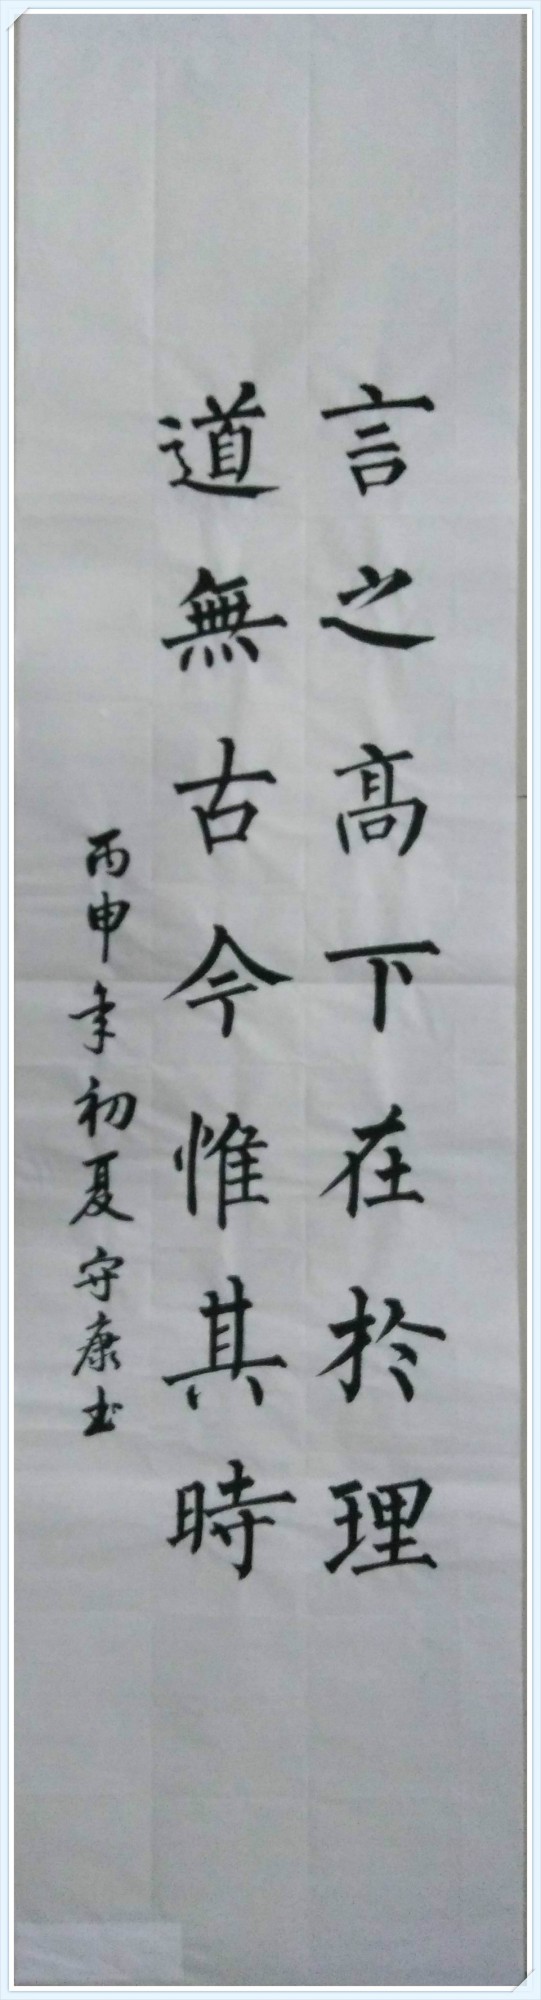 言之高下在於理
道無古今惟其時
丙申年初夏守康书